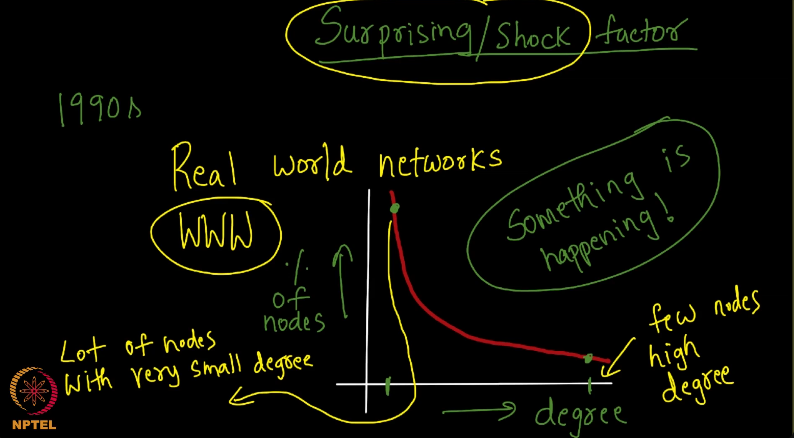 Surprising/Shock factor
1990s
Real world networks
WWW
Something is
happening!
%
of
nodes
Lot of nodes
With very small degree
few nodes
high
degree
degree
NPTEL